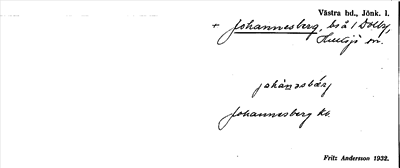 Västra hd., Jönk. l.
+ Johannesberg, bs å 1 Dolby,
Hultsjö sn.
johanəsbärj
Johannesberg Kb.
Fritz Andersson 1932.